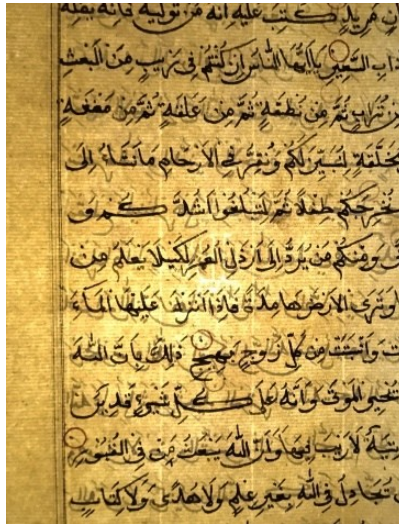 مَرِيدٍ كُتِبَ عَلَيْهِ اَنَّهُ مَنْ تَوَلّٰيهُ فَاَنَّهُ يُضِلُّهُ
السَّعِيرِ يَا اَيُّهَا النَّاسُ اِنْ كُنْتُمْ فِى رَيْبٍ مِنَ الْبَعْثِ
تُرَابٍ ثُمَّ مِنْ نُطْفَةٍ ثُمَّ مِنْ عَلَقَةٍ ثُمَّ مِنْ مُضْغَةٍ
مُخَلَّقَةٍ لِنُبَيِّنَ لَكُمْ وَنُقِرُّ فِى الْاَرْحَامِ مَا نَشَاءُ اِلٰى
نُخْرِجُكُمْ طِفْلًا ثُمَّ لِتَبْلُغُوا اَشُدَّكُمْ وَ
وَمِنْكُمْ مَنْ يُرَدُّ اِلٰى اَرْذَلِ الْعُمُرِ لِكَيْلَا يَعْلَمَ مِنْ
وَتَرَى الْاَرْضَ هَامِدَةً فَاِذَا اَنْزَلْنَا عَلَيْهَا الْمَاءَ
وَاَنْبَتَتْ مِنْ كُلِّ زَوْجٍ بَهِيجٍ ذٰلِكَ بِاَنَّ اللّٰهَ
يُحْيِى الْمَوْتٰى وَاَنَّهُ عَلٰى كُلِّ شَىْءٍ قَدِيرٌ
لَا رَيْبَ فِيهَا وَاَنَّ اللّٰهَ يَبْعَثُ مَنْ فِى الْقُبُورِ
يُجَادِلُ فِى اللّٰهِ بِغَيْرِ عِلْمٍ وَلَا هُدًى وَلَا كِتَابٍ